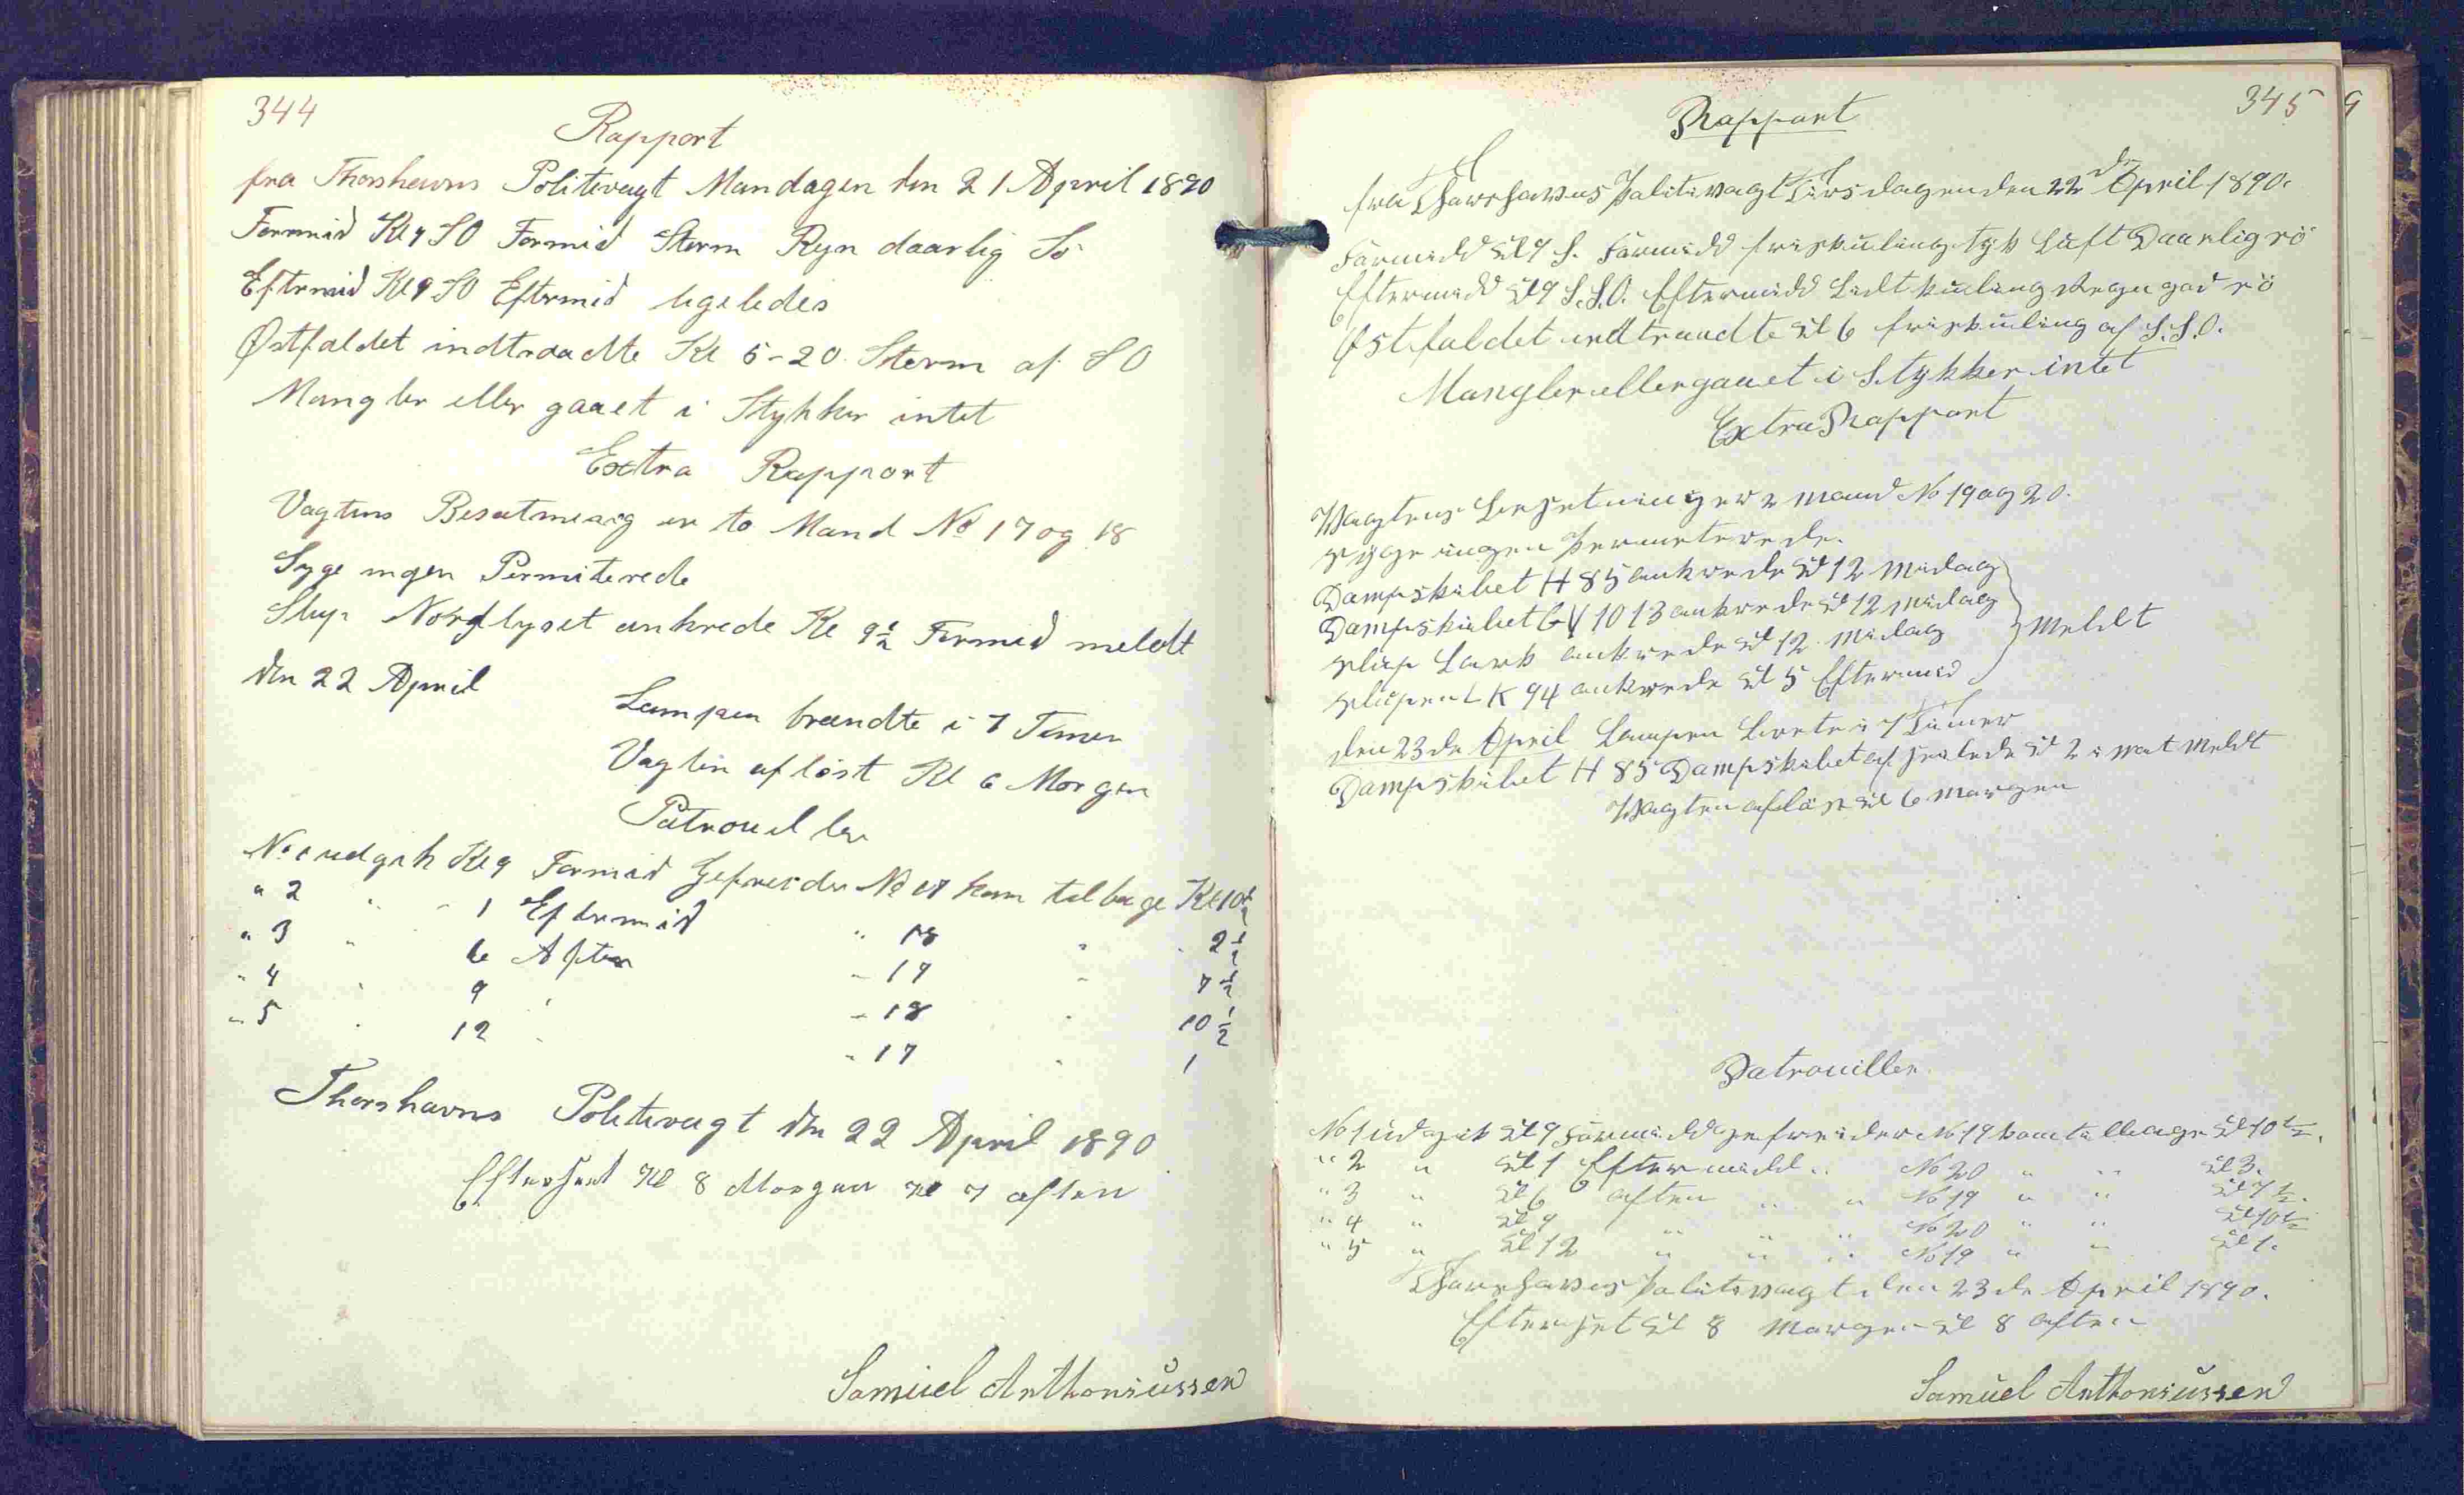 344
Rapport
fra Thorshavns Politivagt Mandagen den 21 April 1890
Formid Kl 9 SO Formid Storm Ryn daarlig Sö
Eftrmid Kl 9 SO Eftermid ligeledes
Østfaldet indtraadte Kl 5-20. Storm af SO
Mangler eller gaaet i Stykker intet
Extra Rapport
Vagtens Besætning er to Mand No 17 og 18
Syge ingen Permiterede
Slup Nordlyset ankrede Kl 9½ Formid meldt
den 22 April
Lampen brændte i 7 Timer
Vagten aflöst Kl 6 Morgen
Patrouiller
No 1 udgik Kl 9 Formid Gefreider No 17 kom tilbage Kl 10½
" 2 " - 1 Eftermid " 18 " " 2½
" 3 " 6 Aften - 17 - 7½
" 4 " 9 " - 18 " 10½
" 5 " 12 " " 17 " 1
Thorshavns Politivagt den 22 April 1890
Efterset Kl 8 Morgen Kl 7 aften
Samuel Anthoniussen
345
Rapport
fra Thorshavns Politivagt Tirsdagen den 22de April 1890.
Formidd Kl 9 S. Formidd friskuling tyk Luft Daarlig sö
Eftermidd Kl 9 S.S.O. Eftermidd Lidt kuling Regn god sö
Østfaldet indtraadte Kl 6 friskuling af S.S.O.
Mangler eller gaaet i Stykker intet
Extra Rapport
Wagtens Besetning er 2 Mand No 19 og 20.
syge ingen Permeterede.
Dampskibet H 85 ankrede Kl 12 Midag
Dampskibet GY 1013 ankrede Kl 12 Midag
slup Lark ankrede Kl 12 Midag
slupen LK 94 ankrede Kl 5 Eftermid
Meldt
den 23de April Lampen brente i 7 Timer
Dampskibet H 85 Dampskibet afseilede Kl 2 i Nat Meldt
Wagten aflöst Kl 6 Morgen
Patrouiller
No 1 udgik Kl 9 Formidd gefreider No 19 kom tilbage Kl 10½.
" 2 " Kl 1 Eftermidd " No 20 " " Kl 3.
" 3 " Kl 6 aften " " No 19 " " Kl 7½.
" 4 " Kl 9 " " " No 20 " " Kl 10½
" 5 " Kl 12 " " " No 19 " " Kl 1.
Thorshavns Politivagt den 23de April 1890.
Efterset Kl 8 Morgen Kl 8 aften
Samuel Anthoniussen
9